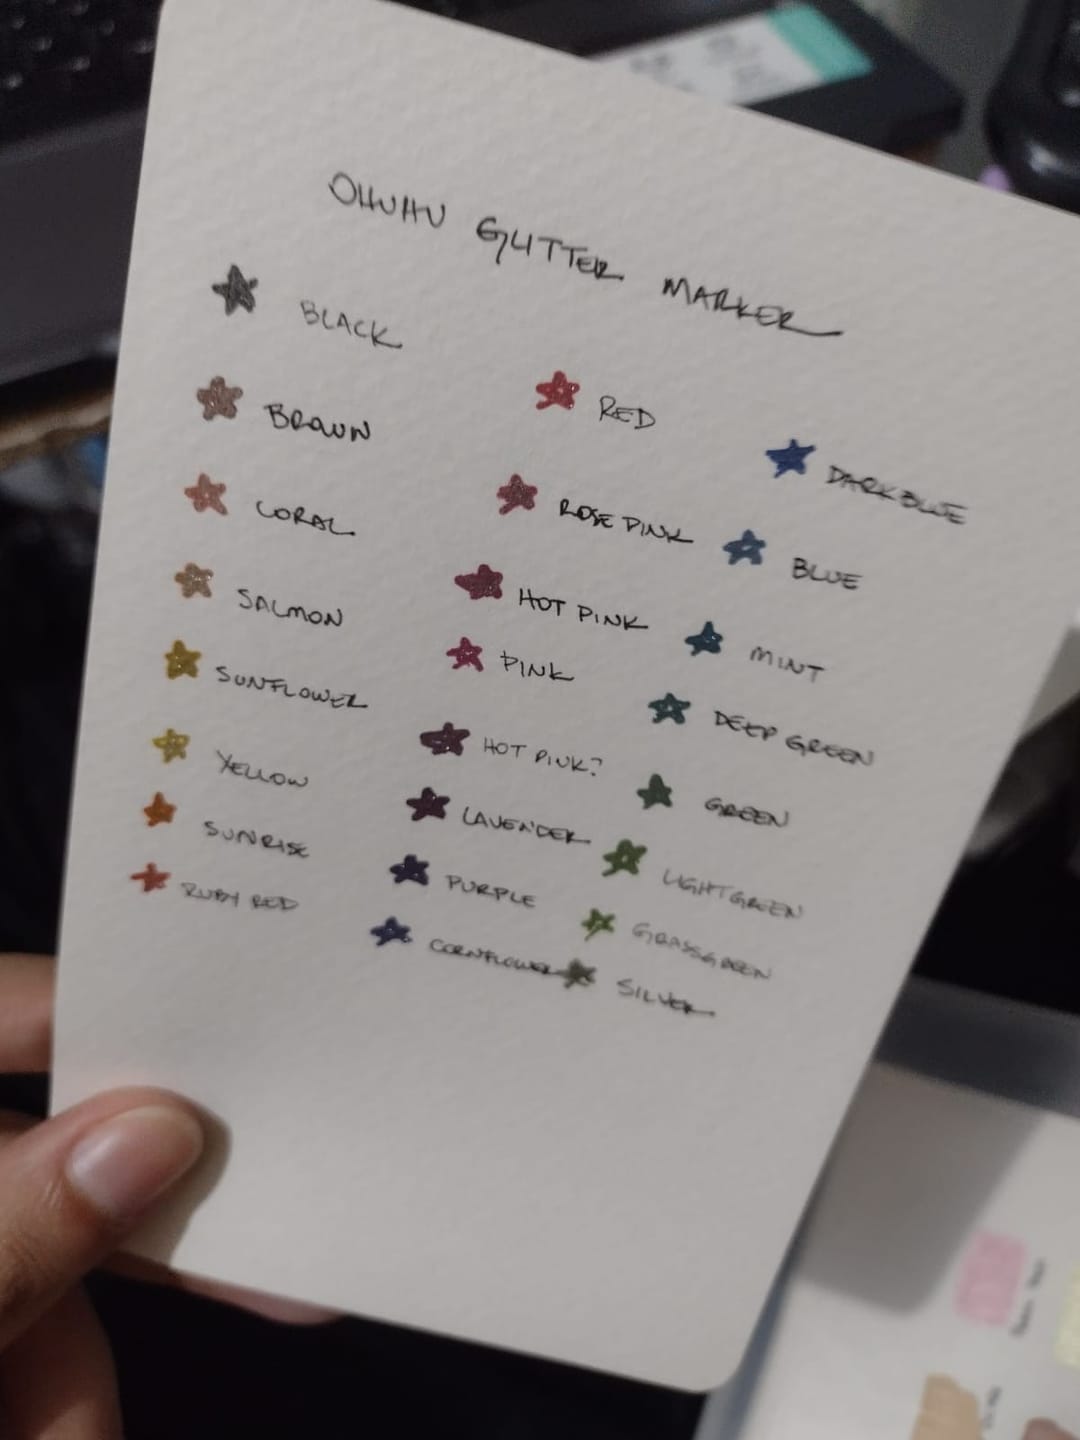 OHUHU GLITTER MARKER
BLACK
BROWN
CORAL
SALMON
SUNFLOWER
YELLOW
SUNRISE
RUBY RED
RED
ROSE PINK
HOT PINK
PINK
HOT PINK?
LAVENDER
PURPLE
CORNFLOWER
DARK BLUE
BLUE
MINT
DEEP GREEN
GREEN
LIGHT GREEN
GRASS GREEN
SILVER